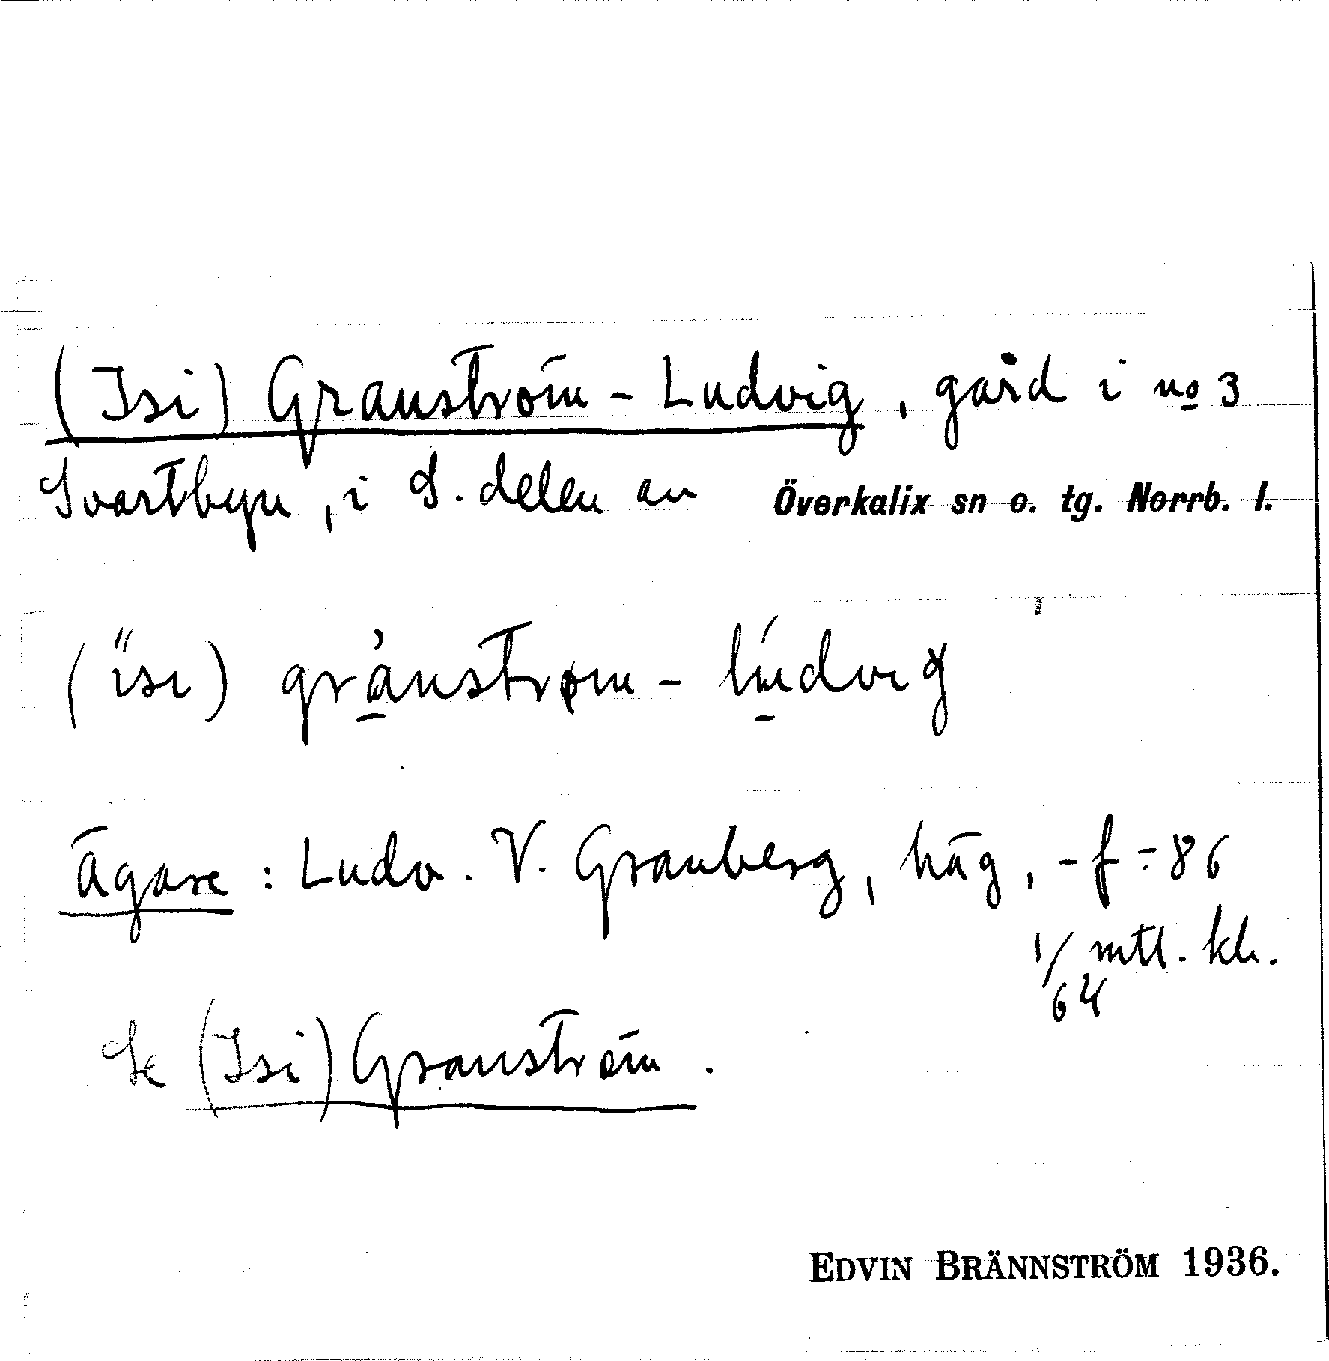 (Isi) Granström - Ludvig, gård i no 3
Svartbyn, i S. delen av Överkalix sn o. tg. Norrb. l.
(ïsi) grànstrøm - lúdvig
Ägare: Ludv. V. Granberg, häg, - f ÷ 86
1/64 mtl. kb.
Se (Isi) Granström.
EDVIN BRÄNNSTRÖM 1936.